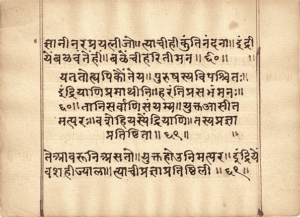 ज्ञानीनरप्रयत्नीजो॥ त्याचीहीकुंतिनंदना॥ इंद्री
येंबळवंतेहीं॥ बळेंचीहरितीमन॥६०॥
यततोह्यपिकौंतेय॥ पुरुषस्यविपश्चितः॥
इंद्रियाणिप्रमाथीनि॥ हरंतिप्रसभंमनः॥
६०॥ तानिसर्वाणिसंयम्य॥ युक्तआसीत
मत्परः॥ वशेहियस्येंद्रियाणि॥ तस्यप्रज्ञा
प्रतिष्ठिता॥६१॥
युक्तहोउनिमत्पर॥ इंद्रियें
वशहीज्याला॥ त्याचीप्रज्ञाप्रतिष्ठिली॥६१॥